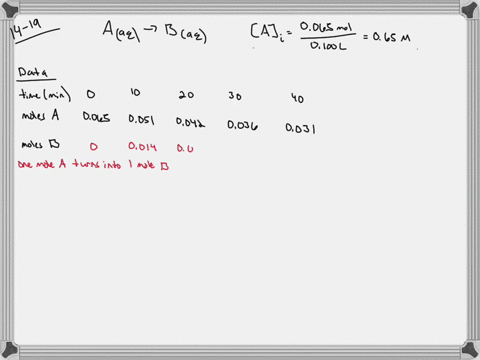 14-19
A(aq) → B(aq)
[A]i = 0.065 mol / 0.100 L = 0.65 M
Data
time (min) 0 10 20 30 40
moles A 0.065 0.051 0.042 0.036 0.031
moles B 0 0.014 0.0
one mole A turns into 1 mole B